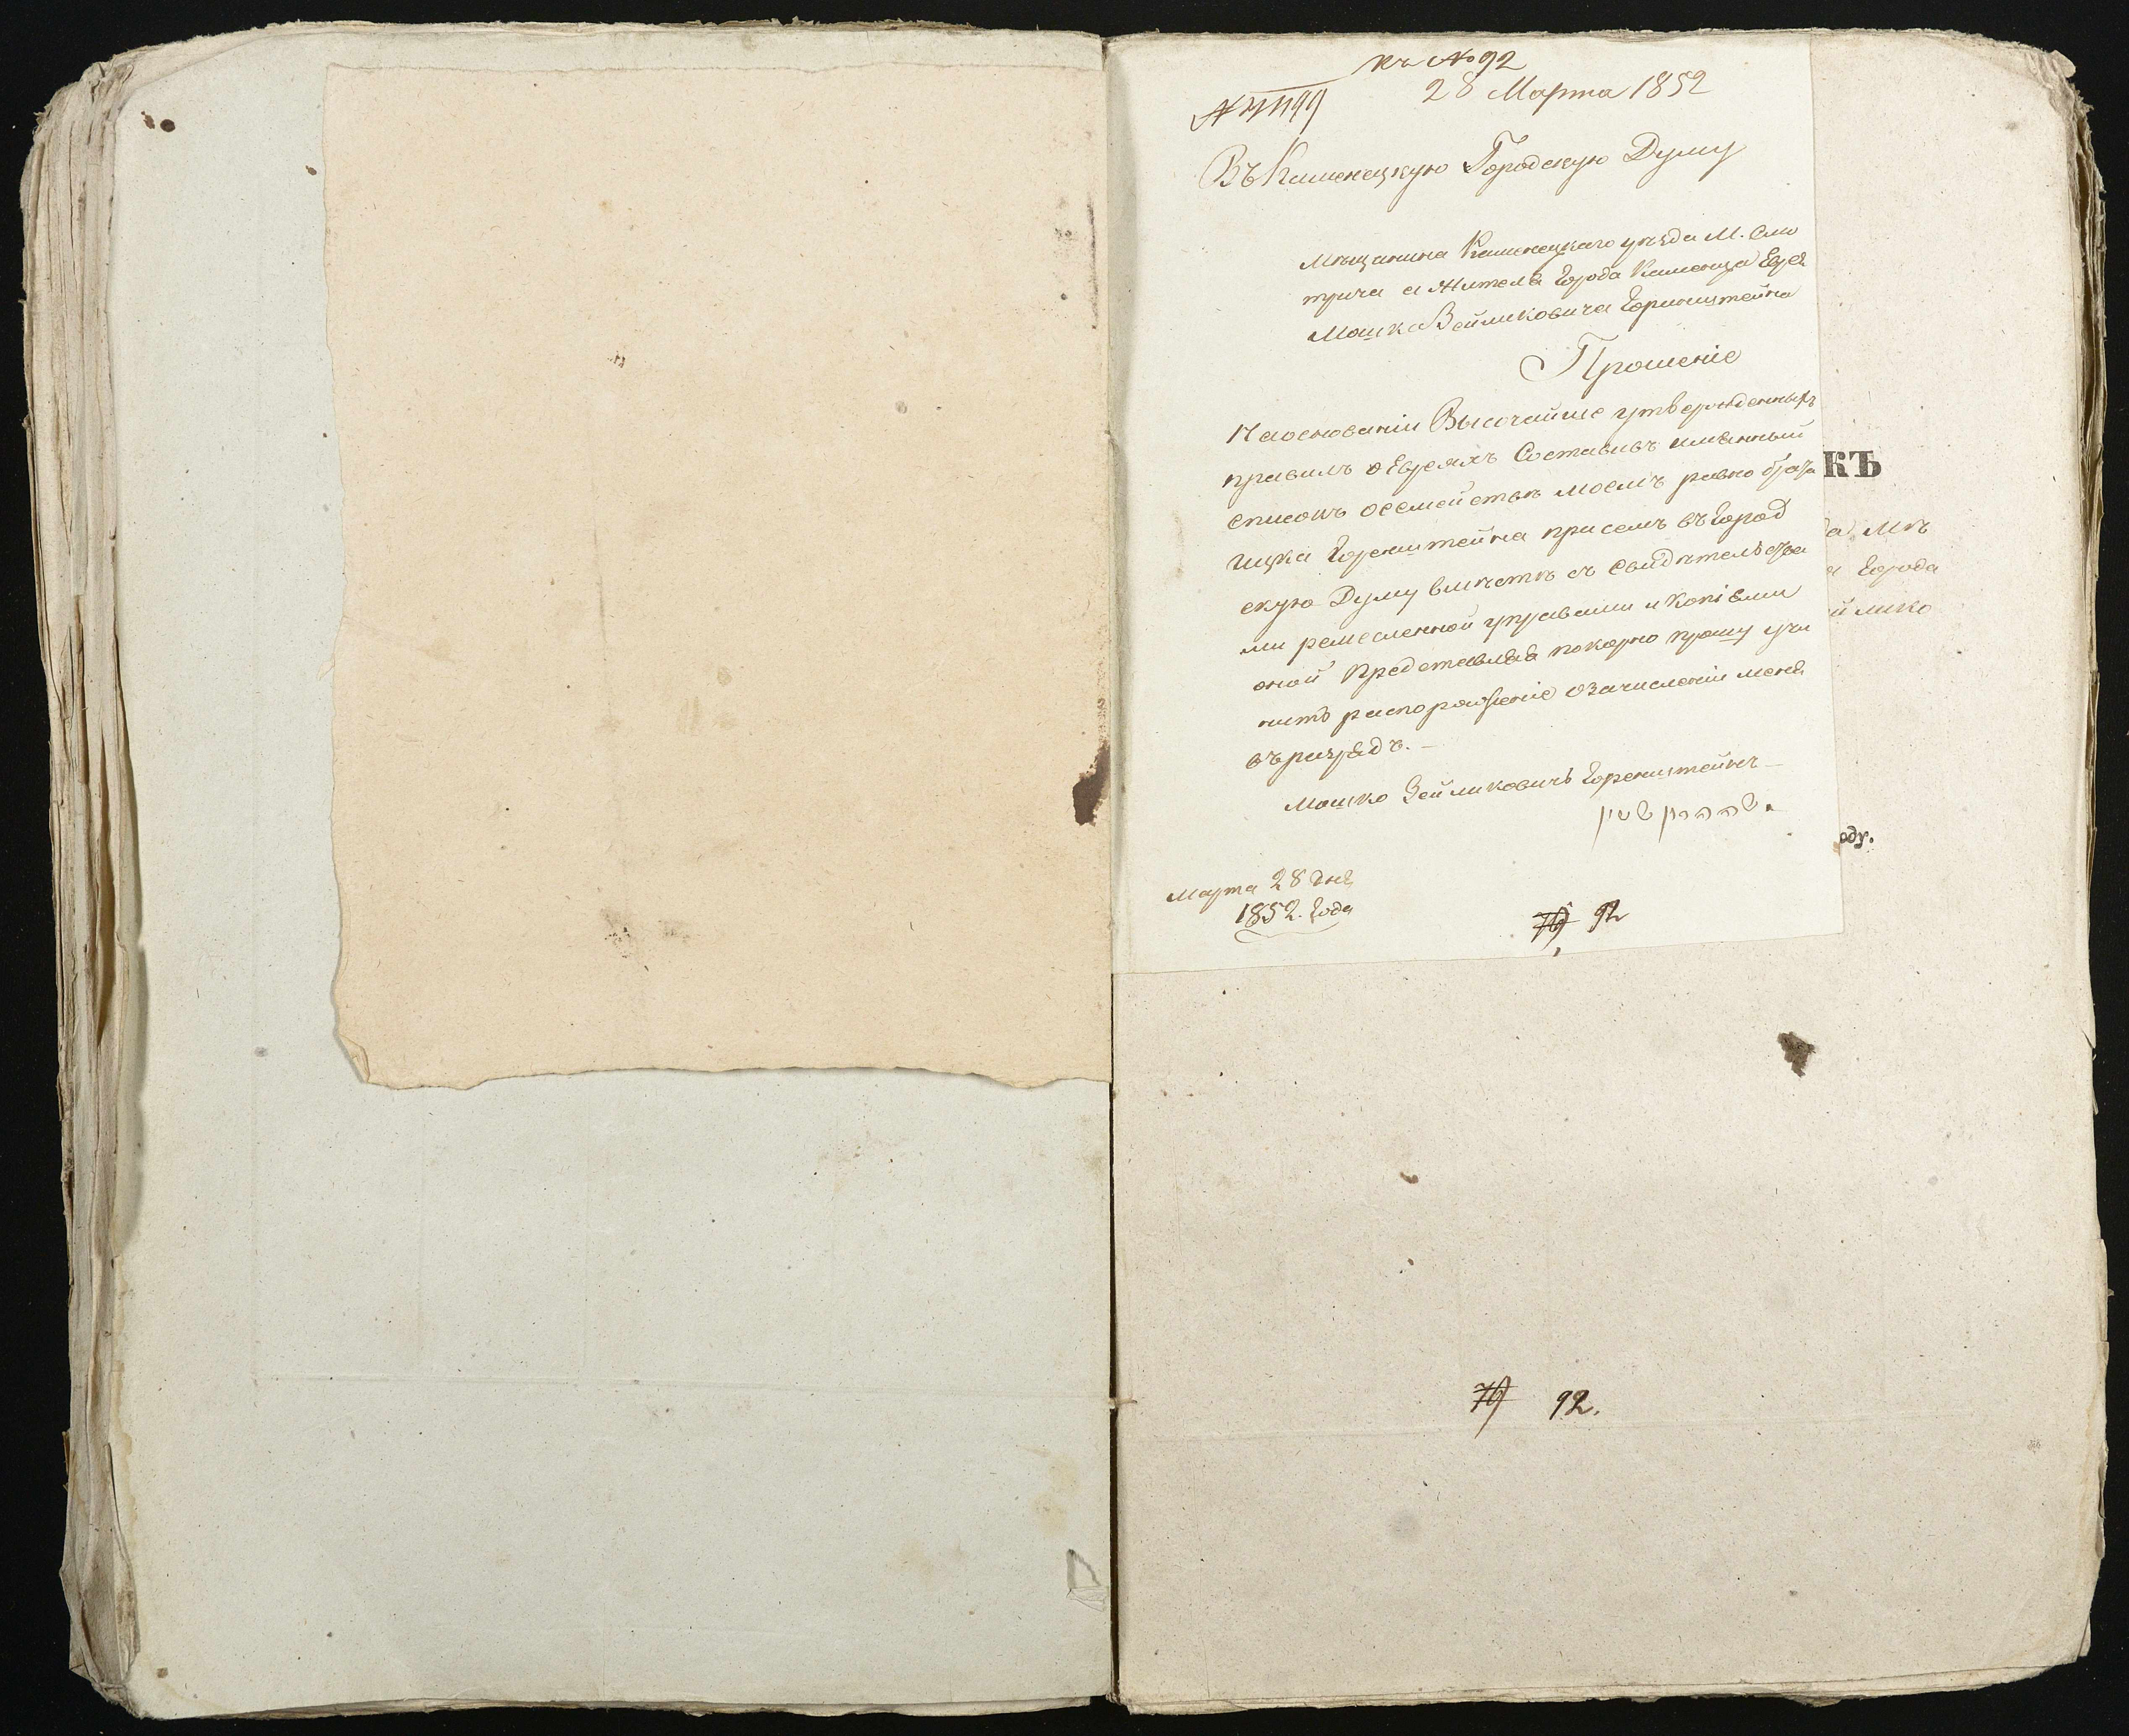 къ №92
28 Марта 1852
Въ Каменецкую Городскую Думу
Мѣщанина Каменецкаго уѣзда М. Смо
трича а Жителя Города Каменца Еврея
Мошка Зейликовича Горинштейна
Прошеніе
На основаніи Высочайше утвержденныхъ
правилъ о Евреяхъ Составивъ имянный
списокъ о семействѣ моемъ равно брата
Ицка Горенштейна при семъ въ Город
скую Думу вмѣстѣ съ Свидѣтельства
ми ремесленной управами и Копіями
оной Представляя покорно прошу учи
нить распоряженіе о зачисленіи меня
въ разрядъ. —
Мошко Зейликовичъ Горенштейнъ —
Марта 28 дня
1852. Года
79 92
КЪ
да Мѣ
я Города
йлико
оду.
79 92.